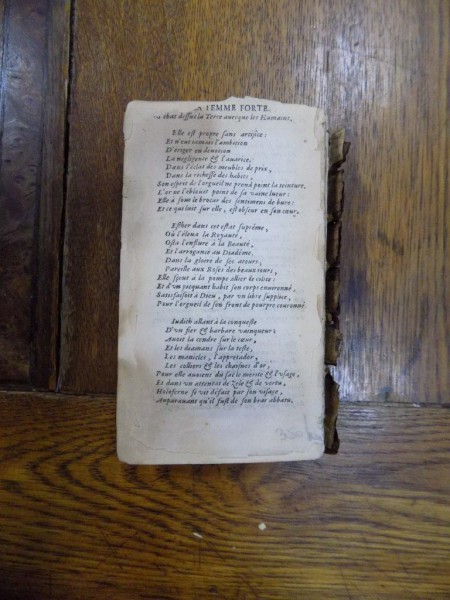 FEMME FORTE.
chat dessus la Terre avecque les Humains.
Elle est propre sans artifice:
Et n'eut iamais l'ambition
D'eriger en deuotion
La negligence & l'auarice,
Dans l'éclat des meubles de prix,
Dans la richesse des habits,
Son esprit de l'orgueil ne prend point la teinture,
L'or ne l'éblouït point de sa vaine lueur:
Elle a sous le brocar des sentimens de bure:
Et ce qui luit sur elle, est obscur en son cœur,
Esther dans cet estat suprême,
Où l'éleua la Royauté,
Osta l'enflure à la Beauté,
Et l'arrogance au Diadême.
Dans la gloire de ses atours,
Pareille aux Roses des beaux iours,
Elle sceut à la pompe allier le cilice:
Et d'vn picquant habit son corps enuironné,
Satisfaisoit à Dieu, par vn libre supplice,
Pour l'orgueil de son front de pourpre couronné.
Iudith allant à la conqueste
D'vn fier & barbare vainqueur;
Auoit la cendre sur le cœur,
Et les diamans sur la teste,
Les manicles, l'apretador,
Les colliers & les chaisnes d'or,
Pour elle auoient du sac le merite & l'vsage,
Et dans vn attentat de Zele & de vertu,
Holoferne se vit défait par son visage,
Auparauant qu'il fust de son bras abbatu.